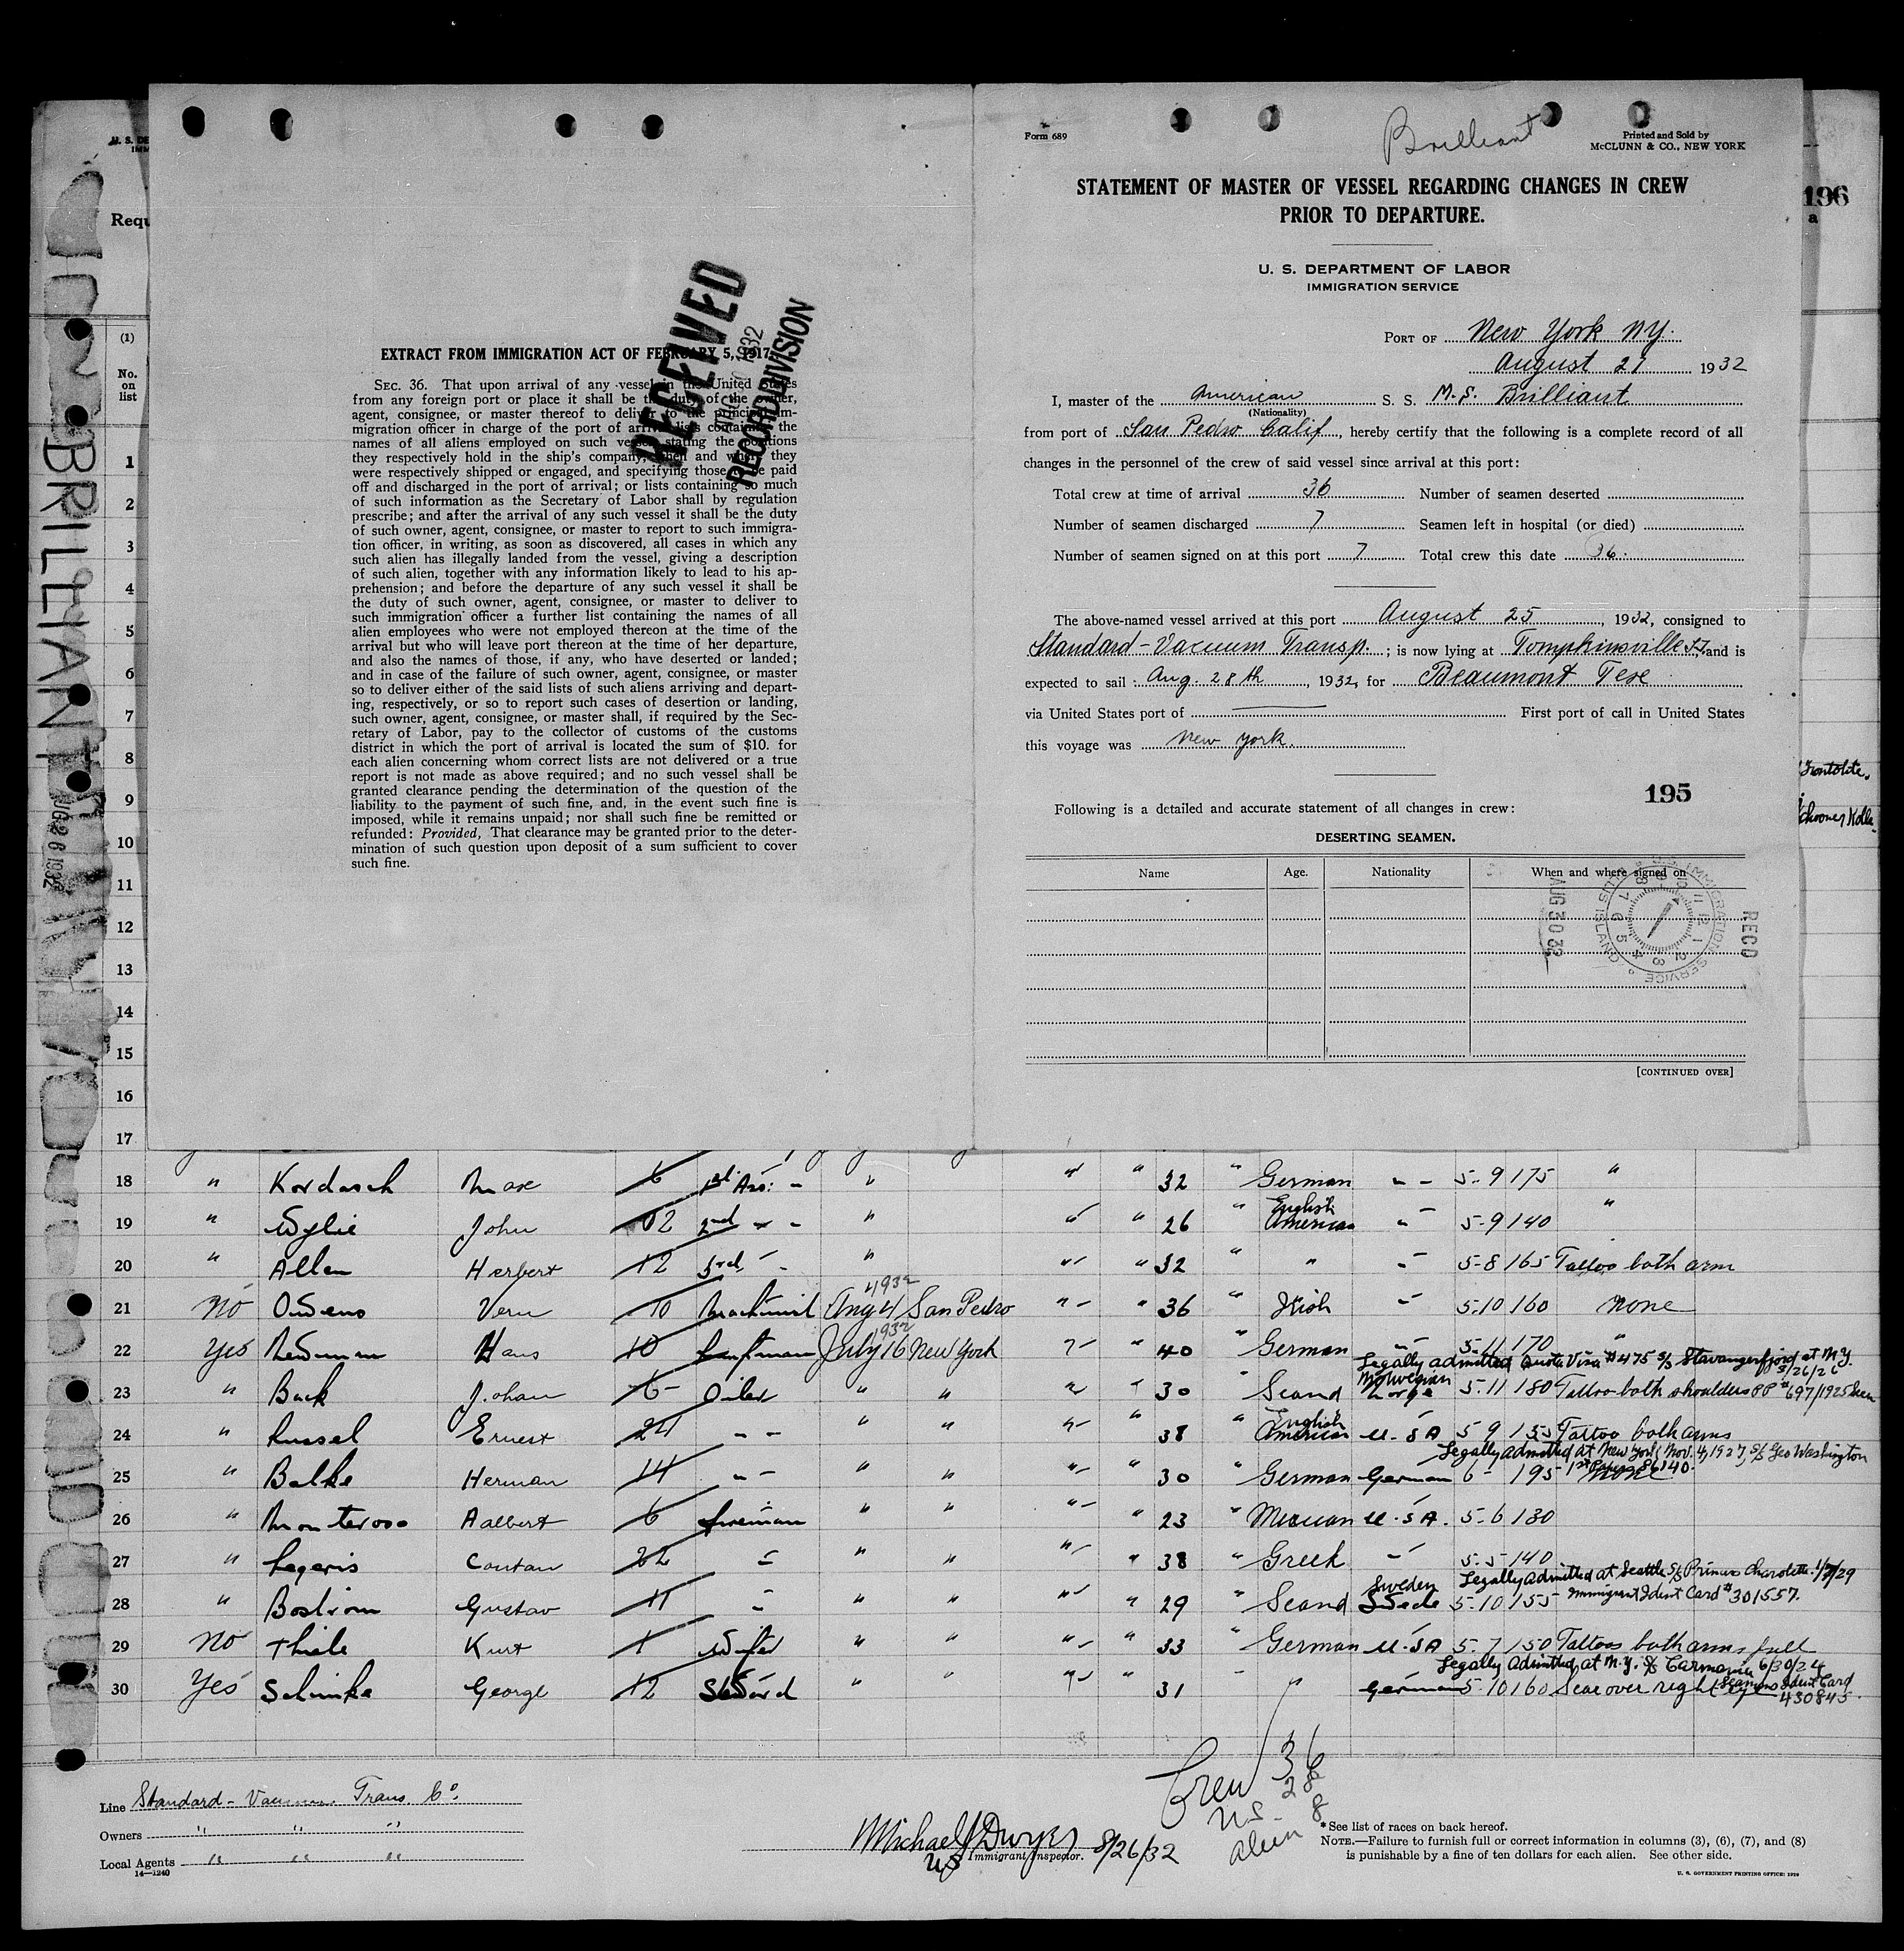 U. S. DE
IMM
Requ
(1)
No.
on
list
BRILLIANT
AUG 26 1932
EXTRACT FROM IMMIGRATION ACT OF FEBRUARY 5, 1917
SEC. 36. That upon arrival of any vessel in the United States
from any foreign port or place it shall be the duty of the owner,
agent, consignee, or master thereof to deliver to the principal im-
migration officer in charge of the port of arrival lists containing the
names of all aliens employed on such vessel, stating the positions
they respectively hold in the ship's company, when and where they
were respectively shipped or engaged, and specifying those to be paid
off and discharged in the port of arrival; or lists containing so much
of such information as the Secretary of Labor shall by regulation
prescribe; and after the arrival of any such vessel it shall be the duty
of such owner, agent, consignee, or master to report to such immigra-
tion officer, in writing, as soon as discovered, all cases in which any
such alien has illegally landed from the vessel, giving a description
of such alien, together with any information likely to lead to his ap-
prehension; and before the departure of any such vessel it shall be
the duty of such owner, agent, consignee, or master to deliver to
such immigration officer a further list containing the names of all
alien employees who were not employed thereon at the time of the
arrival but who will leave port thereon at the time of her departure,
and also the names of those, if any, who have deserted or landed;
and in case of the failure of such owner, agent, consignee, or master
so to deliver either of the said lists of such aliens arriving and depart-
ing, respectively, or so to report such cases of desertion or landing,
such owner, agent, consignee, or master shall, if required by the Sec-
retary of Labor, pay to the collector of customs of the customs
district in which the port of arrival is located the sum of $10. for
each alien concerning whom correct lists are not delivered or a true
report is not made as above required; and no such vessel shall be
granted clearance pending the determination of the question of the
liability to the payment of such fine, and, in the event such fine is
imposed, while it remains unpaid; nor shall such fine be remitted or
refunded: Provided, That clearance may be granted prior to the deter-
mination of such question upon deposit of a sum sufficient to cover
such fine.
RECEIVED
1932
RECORD DIVISION
Form 689
Brilliant
Printed and Sold by
McCLUNN & CO., NEW YORK
STATEMENT OF MASTER OF VESSEL REGARDING CHANGES IN CREW
PRIOR TO DEPARTURE.
U. S. DEPARTMENT OF LABOR
IMMIGRATION SERVICE
PORT OF New York NY.
August 27 1932
I, master of the American S. S. M.S. Brilliant
(Nationality)
from port of San Pedro Calif, hereby certify that the following is a complete record of all
changes in the personnel of the crew of said vessel since arrival at this port:
Total crew at time of arrival 36 Number of seamen deserted
Number of seamen discharged 7 Seamen left in hospital (or died)
Number of seamen signed on at this port 7 Total crew this date 36.
The above-named vessel arrived at this port August 25, 1932, consigned to
Standard-Vacuum Transp.; is now lying at Tompkinsville and is
expected to sail Aug. 28th, 1932, for Beaumont Tex
via United States port of First port of call in United States
this voyage was New York.
195
Following is a detailed and accurate statement of all changes in crew:
DESERTING SEAMEN.
Name Age. Nationality When and where signed on
U.S. IMMIGRATION SERVICE ELLIS ISLAND
AUG 30 32
RECD
[CONTINUED OVER]
196
a
1
2
3
4
5
6
7
8
9
10
11
12
13
14
15
16
17
18 " Kordasch Max 6 1st Ass. - " " " 32 " German " - 5-9 175 "
19 " Wylie John 02 2nd " - " " " 26 " English American " 5-9 140 "
20 " Allen Herbert 12 3rd " - " " " 32 " " " 5-8 165 Tattoo both arm
21 No Owens Vern 10 Machinist Aug 4 1932 San Pedro " " 36 " Irish " 5-10 160 None
22 Yes Newman Hans 10 July 16 1932 New York " " 40 " German " 5-11 170 "
Legally admitted Quota Visa #475 S/S Stavangerfjord at N.Y.
3/26/26
23 " Back Johan 6 Oiler " " " " 30 " Scand Norwegian Norge 5-11 180 Tattoo both shoulders PP #697/1925 Seen
24 " Russel Ernest 24 " - " " " " 38 " English American U-SA 5 9 155 Tattoo both arms
Legally admitted at New York Nov. 4, 1927, S/S Geo Washington
25 " Balke Herman 14 " - " " " " 30 " German German 6- 195 None
26 " Monteroso Aalbert 6 fireman " " " " 23 " Mexican U.SA. 5-6 130
27 " Legeris Coutan 22 " " " " " 38 " Greek " 5-5 140
Legally Admitted at Seattle S/S Princess Charolette. 1/7/29
28 " Bostrom Gustav 11 " " " " " 29 " Scand Sweden Swede 5-10 155 Immigrant Ident Card #301557.
29 No Thiele Kurt 1 Wiper " " " " 33 " German U-SA 5-7 150 Tattoos both arms full
Legally Admitted, at N.Y. S/S Carmania 6/30/24
30 Yes Schimke George 12 Steward " " " " 31 " German 5-10 160 Scar over right eye Seamans Ident Card
430845.
Crew 36
28
US - 8
alien
Line Standard-Vacuum Trans. Co.
Owners " " "
Local Agents " " "
14—1240
Michael J Dwyer 8/26/32
US Immigrant Inspector.
*See list of races on back hereof.
NOTE.—Failure to furnish full or correct information in columns (3), (6), (7), and (8)
is punishable by a fine of ten dollars for each alien. See other side.
U. S. GOVERNMENT PRINTING OFFICE: 1929